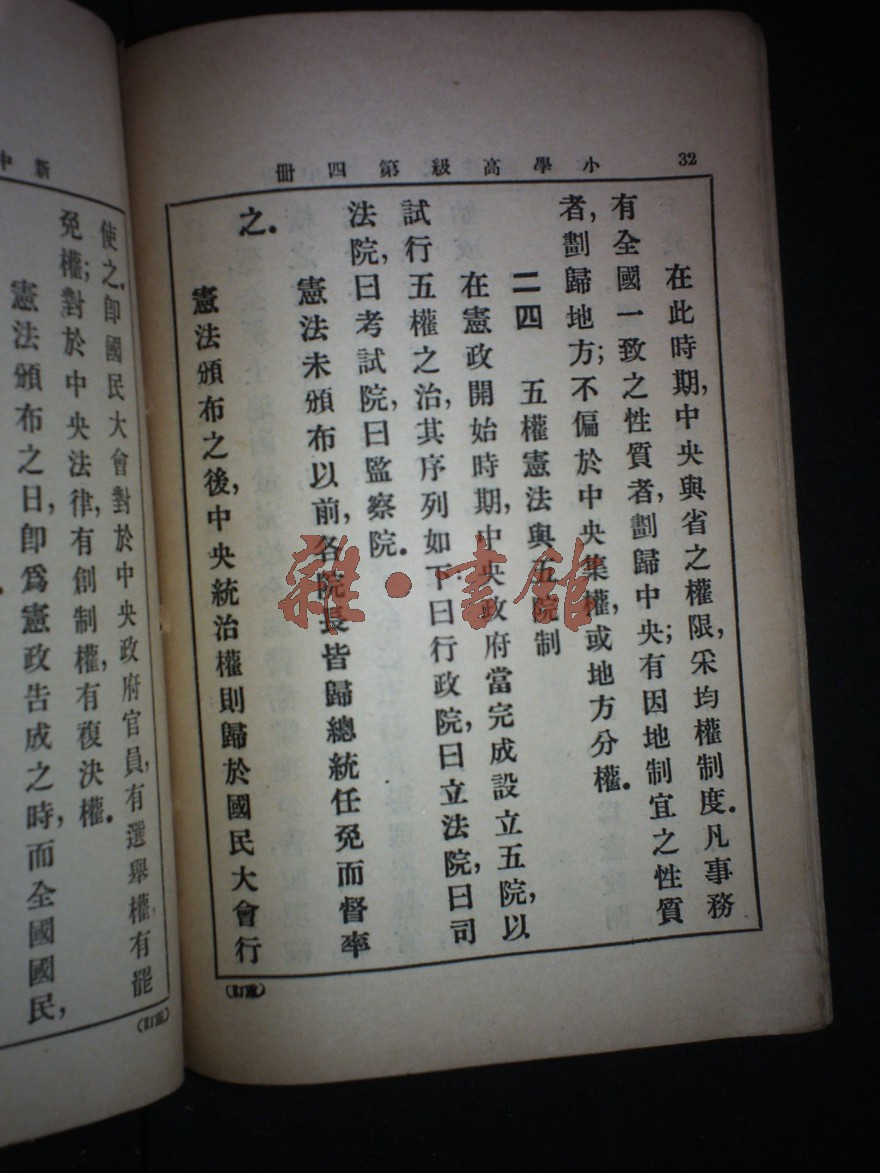 32
小學高級第四冊
在此時期，中央與省之權限，采均權制度。凡事務
有全國一致之性質者，劃歸中央；有因地制宜之性質
者，劃歸地方；不偏於中央集權，或地方分權。
二四　五權憲法與五院制
在憲政開始時期，中央政府當完成設立五院，以
試行五權之治，其序列如下：曰行政院，曰立法院，曰司
法院，曰考試院，曰監察院。
憲法未頒布以前，各院長皆歸總統任免而督率
之。
憲法頒布之後，中央統治權則歸於國民大會行
新中
使之。卽國民大會對於中央政府官員，有選舉權，有罷
免權；對於中央法律，有創制權，有複決權。
憲法頒布之日，卽爲憲政告成之時，而全國國民，
雜·書館